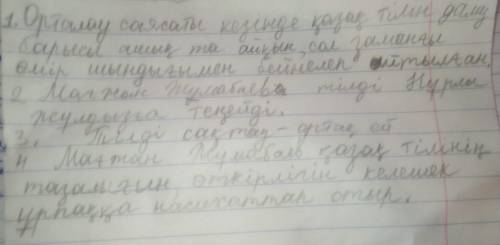 1. Орталау саясаты кезінде қазақ тілін даму
барысы ашық та айқын, сол заманғы
өмір шындығымен бейнелеп айтылған.
2 Мағжан Жұмабаев тілді Нұрлы
жұлдызға теңейді.
3. Тілді сақтау - ортақ ой
4 Мағжан Жумабаев қазақ тілінің
тазалығын, өткірлігін келешек
ұрпаққа насихаттап отыр.